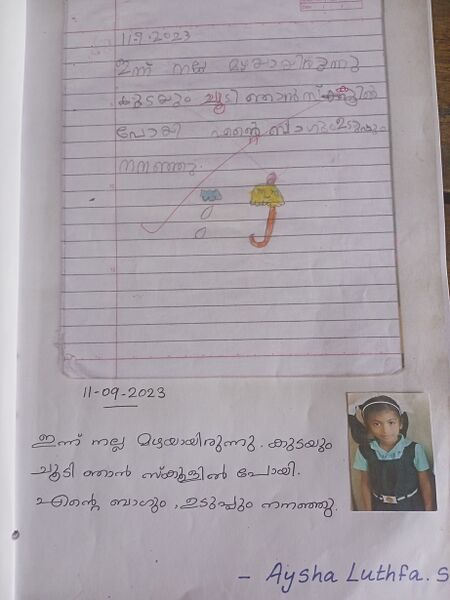 11.9.2023
ഇന്ന് നല്ല മഴയായിരുന്നു
കുടയും ചൂടി ഞാൻ സ്കൂളിൽ
പോയി എന്റെ ബാഗും ഉടുപ്പും
നനഞ്ഞു.
11-09-2023
ഇന്ന് നല്ല മഴയായിരുന്നു. കുടയും
ചൂടി ഞാൻ സ്കൂളിൽ പോയി.
എന്റെ ബാഗും, ഉടുപ്പും നനഞ്ഞു.
- Aysha Luthfa. S